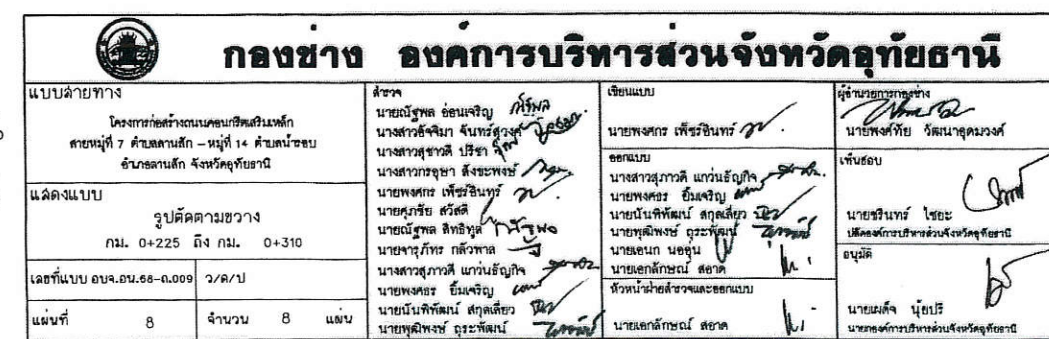 กองช่าง องค์การบริหารส่วนจังหวัดอุทัยธานี
แบบสายทาง
โครงการก่อสร้างถนนคอนกรีตเสริมเหล็ก
สายหมู่ที่ 7 ตำบลลานสัก – หมู่ที่ 14 ตำบลน้ำรอบ
อำเภอลานสัก จังหวัดอุทัยธานี
แสดงแบบ
รูปตัดตามขวาง
กม. 0+225 ถึง กม. 0+310
เลขที่แบบ อบจ.อน.68-ถ.009
ว/ด/ป
แผ่นที่ 8
จำนวน 8 แผ่น
สำรวจ
นายณัฐพล อ่อนเจริญ
นางสาวอัจจิมา จันทร์สุวงศ์
นางสาวสุชาวดี ปรีชา
นางสาวกรอุษา สังขะพงษ์
นายพงศกร เพ็ชรอินทร์
นายศุภชัย สวัสดี
นายณัฐพล สิทธิทูล
นายจารุภัทร กลัวพาล
นางสาวสุภาวดี แก่วนธัญกิจ
นายพงศธร ยิ้มเจริญ
นายนันทิพัฒน์ สกุลเลี่ยว
นายพุฒิพงษ์ ถุระพัฒน์
เขียนแบบ
นายพงศกร เพ็ชรอินทร์
ออกแบบ
นางสาวสุภาวดี แก่วนธัญกิจ
นายพงศธร ยิ้มเจริญ
นายนันทิพัฒน์ สกุลเลี่ยว
นายพุฒิพงษ์ ถุระพัฒน์
นายเอนก นออุ่น
นายเอกลักษณ์ สอาด
หัวหน้าฝ่ายสำรวจและออกแบบ
นายเอกลักษณ์ สอาด
ผู้อำนวยการกองช่าง
นายพงศ์ทัย วัฒนาอุดมวงศ์
เห็นชอบ
นายชรินทร์ ไชยะ
ปลัดองค์การบริหารส่วนจังหวัดอุทัยธานี
อนุมัติ
นายเผด็จ นุ้ยปรี
นายกองค์การบริหารส่วนจังหวัดอุทัยธานี